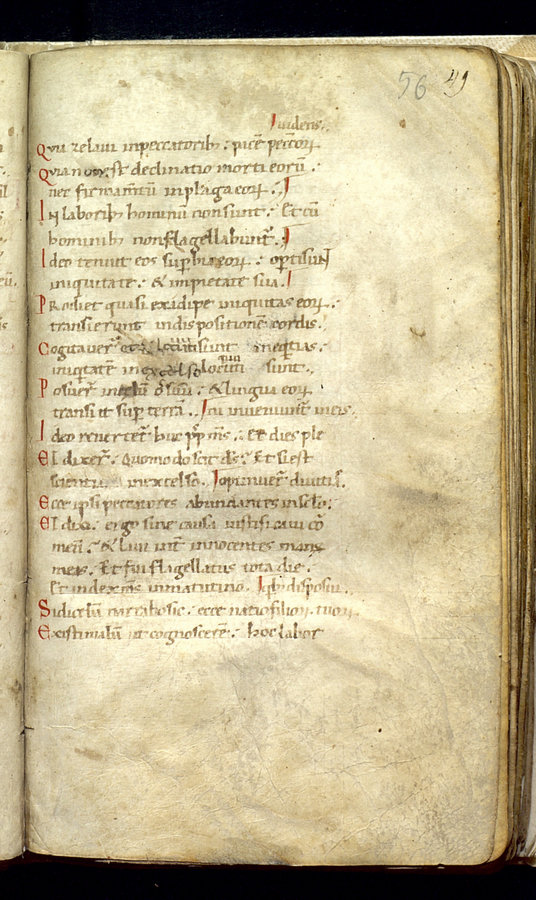 56 49
Iuidens.
Qui zelaui inpeccatorib; : pacē peccorꝝ
Quia non est declinatio morti eorū :
nec firmamtū inplaga eorꝝ.
In laborib; hominū non sunt : Et cū
hominib; non flagellabuntᷣ.
Ideo tenuit eos supbia eorꝝ : optisunt
iniquitate : & impietate sua.
Prodiet quasi exadipe iniquitas eorꝝ :
transierunt indispositionē cordis.
Cogitauerᷣ sunt nequitias :
iniqtatē inexcelso locuti sunt.
Posuerᷣ incelū os suū : & lingua eorꝝ
transiit supterrā. inuenientᷣ ineis.
Ideo reuertetᷣ hic : Et dies ple
Et dixerᷣ : Quomodo scit ds : Et si est
scientia inexcelso. optinuerᷣ diuitias.
Ecce ipsi peccatores abundantes insclo :
Et dixi : ergo sine causa iustificaui cor
meū : & laui int innocentes manꝰ
meas. Et fui flagellatus tota die :
Et index ms inmatutino.
Si dicebā narrabo sic : ecce natio filiorꝝ tuorꝝ
Existimabā ut cognoscerē : hoc labor